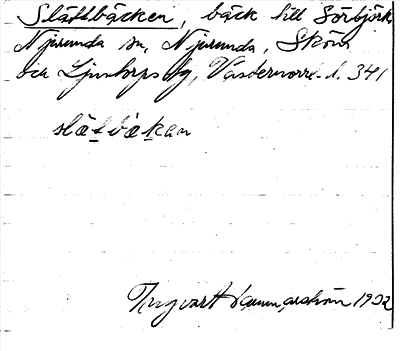 Slättbäcken, bäck till Sörbjörk
Njurunda sn, Njurunda, Sköns
och Ljustorps tg, Västernorrl. l. 341
slätbäkan
Ingvart Hammarström 1932